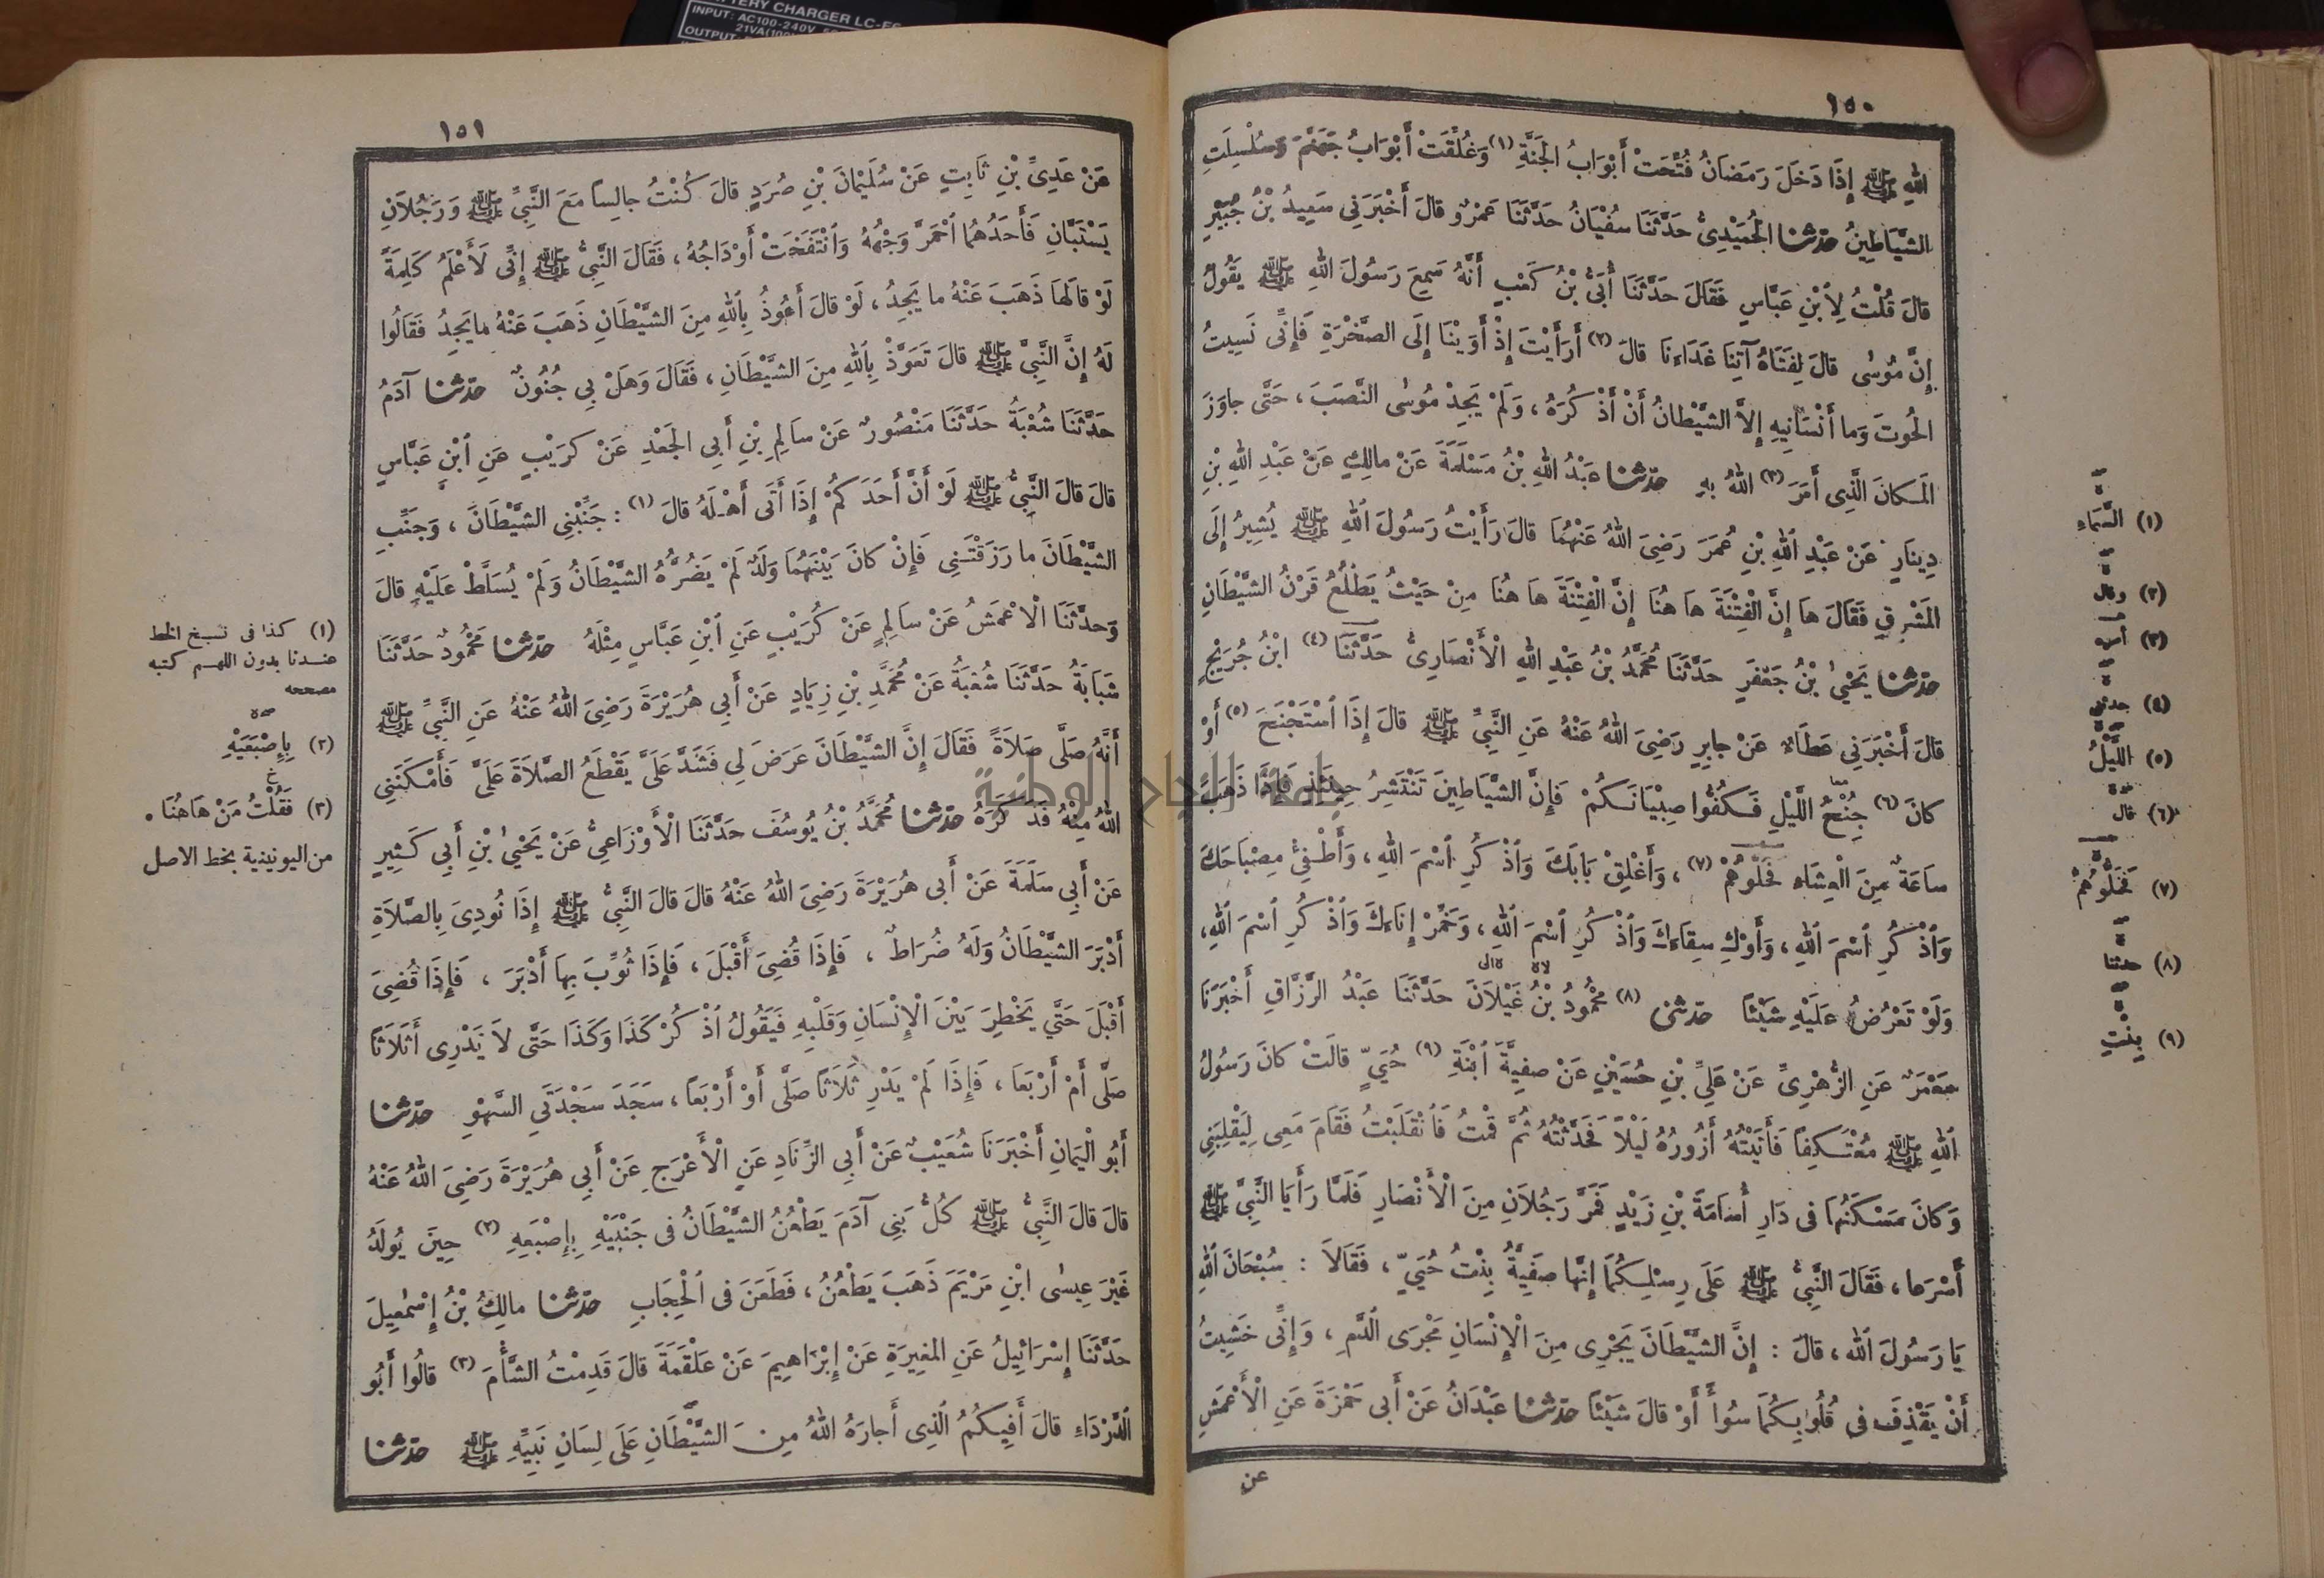 BATTERY CHARGER LC-E6
INPUT: AC100-240V
21VA(100V
OUTPUT:
١٥٠
اللهِ ﷺ إِذَا دَخَلَ رَمَضَانُ فُتِّحَتْ أَبْوَابُ الْجَنَّةِ (١) وَغُلِّقَتْ أَبْوَابُ جَهَنَّمَ وَسُلْسِلَتِ
الشَّيَاطِينُ حَدَّثَنَا الْحُمَيْدِىُّ حَدَّثَنَا سُفْيَانُ حَدَّثَنَا عَمْرٌو قالَ أَخْبَرَنِى سَعِيدُ بْنُ جُبَيْرٍ
قالَ قُلْتُ لِأَبْنِ عَبَّاسٍ فَقَالَ حَدَّثَنَا أُبَىُّ بْنُ كَعْبٍ أَنَّهُ سَمِعَ رَسُولَ اللهِ ﷺ يَقُولُ
إِنَّ مُوسٰى قالَ لِفَتَاهُ آتِنَا غَدَاءَنَا قالَ (٢) أَرَأَيْتَ إِذْ أَوَيْنَا إِلَى الصَّخْرَةِ فَإِنِّى نَسِيتُ
الْحُوتَ وَما أَنْسَانِيهِ إِلاَّ الشَّيْطَانُ أَنْ أَذْكُرَهُ ، وَلَمْ يَجِدْ مُوسٰى النَّصَبَ ، حَتَّى جاوَزَ
الْمَكانَ الَّذِى أَمَرَ (٣) اللهُ بِهِ حَدَّثَنَا عَبْدُ اللهِ بْنُ مَسْلَمَةَ عَنْ مالِكٍ عَنْ عَبْدِ اللهِ بْنِ
دِينَارٍ عَنْ عَبْدِ اللهِ بْنِ عُمَرَ رَضِىَ اللهُ عَنْهُمَا قالَ رَأَيْتُ رَسُولَ اللهِ ﷺ يُشِيرُ إِلَى
الْمَشْرِقِ فَقَالَ ها إِنَّ الْفِتْنَةَ هاهُنَا إِنَّ الْفِتْنَةَ هاهُنَا مِنْ حَيْثُ يَطْلُعُ قَرْنُ الشَّيْطَانِ
حَدَّثَنَا يَحْيٰى بْنُ جَعْفَرٍ حَدَّثَنَا مُحَمَّدُ بْنُ عَبْدِ اللهِ الْأَنْصَارِىُّ حَدَّثَنَا (٤) ابْنُ جُرَيْجٍ
قالَ أَخْبَرَنِى عَطَاءٌ عَنْ جابِرٍ رَضِىَ اللهُ عَنْهُ عَنِ النَّبِىِّ ﷺ قالَ إِذَا اسْتَجْنَحَ (٥) أَوْ
كانَ (٦) جُنْحُ اللَّيْلِ فَكُفُّوا صِبْيَانَكُمْ فَإِنَّ الشَّيَاطِينَ تَنْتَشِرُ حِينَئِذٍ فَإِذَا ذَهَبَ
ساعَةٌ مِنَ الْعِشَاءِ فَخَلُّوهُمْ (٧) ، وَأَغْلِقْ بَابَكَ وَاذْكُرِ اسْمَ اللهِ ، وَأَطْفِئْ مِصْبَاحَكَ
وَاذْكُرِ اسْمَ اللهِ ، وَأَوْكِ سِقَاءَكَ وَاذْكُرِ اسْمَ اللهِ ، وَخَمِّرْ إِنَاءَكَ وَاذْكُرِ اسْمَ اللهِ ،
وَلَوْ تَعْرُضُ عَلَيْهِ شَيْئًا حَدَّثَنِى (٨) مَحْمُودُ بْنُ غَيْلاَنَ حَدَّثَنَا عَبْدُ الرَّزَّاقِ أَخْبَرَنَا
مَعْمَرٌ عَنِ الزُّهْرِىِّ عَنْ عَلِىِّ بْنِ حُسَيْنٍ عَنْ صَفِيَّةَ ابْنَةِ (٩) حُيَيٍّ قالَتْ كانَ رَسُولُ
اللهِ ﷺ مُعْتَكِفًا فَأَتَيْتُهُ أَزُورُهُ لَيْلاً فَحَدَّثْتُهُ ثُمَّ قُمْتُ فَانْقَلَبْتُ فَقَامَ مَعِى لِيَقْلِبَنِى
وَكانَ مَسْكَنُهَا فى دَارِ أُسَامَةَ بْنِ زَيْدٍ فَمَرَّ رَجُلاَنِ مِنَ الْأَنْصَارِ فَلَمَّا رَأَيَا النَّبِىَّ ﷺ
أَسْرَعا ، فَقَالَ النَّبِىُّ ﷺ عَلَى رِسْلِكُمَا إِنَّهَا صَفِيَّةُ بِنْتُ حُيَيٍّ ، فَقَالاَ : سُبْحَانَ اللهِ
يَا رَسُولَ اللهِ ، قالَ : إِنَّ الشَّيْطَانَ يَجْرِى مِنَ الْإِنْسَانِ مَجْرَى الدَّمِ ، وَإِنِّى خَشِيتُ
أَنْ يَقْذِفَ فى قُلُوبِكُمَا سُوأً أَوْ قالَ شَيْئًا حَدَّثَنَا عَبْدَانُ عَنْ أَبى حَمْزَةَ عَنِ الْأَعْمَشِ
عن
(١) السَّمَاءِ
(٢) وقال
(٣) أمره
(٤) حدثنى
(٥) اللَّيْلُ
(٦) قال
(٧) فَحَلُّوهُمْ
(٨) حدثنا
(٩) بِنْتِ
١٥١
عَنْ عَدِىِّ بْنِ ثَابِتٍ عَنْ سُلَيْمَانَ بْنِ صُرَدٍ قالَ كُنْتُ جالِسًا مَعَ النَّبِىِّ ﷺ وَرَجُلاَنِ
يَسْتَبَّانِ فَأَحَدُهُمَا احْمَرَّ وَجْهُهُ وَانْتَفَخَتْ أَوْدَاجُهُ ، فَقَالَ النَّبِىُّ ﷺ إِنِّى لَأَعْلَمُ كَلِمَةً
لَوْ قالَهَا ذَهَبَ عَنْهُ ما يَجِدُ ، لَوْ قالَ أَعُوذُ بِاللهِ مِنَ الشَّيْطَانِ ذَهَبَ عَنْهُ ما يَجِدُ فَقَالُوا
لَهُ إِنَّ النَّبِىَّ ﷺ قالَ تَعَوَّذْ بِاللهِ مِنَ الشَّيْطَانِ ، فَقَالَ وَهَلْ بِى جُنُونٌ حَدَّثَنَا آدَمُ
حَدَّثَنَا شُعْبَةُ حَدَّثَنَا مَنْصُورٌ عَنْ سَالِمِ بْنِ أَبِى الْجَعْدِ عَنْ كُرَيْبٍ عَنِ ابْنِ عَبَّاسٍ
قالَ قالَ النَّبِىُّ ﷺ لَوْ أَنَّ أَحَدَكُمْ إِذَا أَتَى أَهْلَهُ قالَ (١) : جَنِّبْنِى الشَّيْطَانَ ، وَجَنِّبِ
الشَّيْطَانَ ما رَزَقْتَنِى فَإِنْ كانَ بَيْنَهُمَا وَلَدٌ لَمْ يَضُرُّهُ الشَّيْطَانُ وَلَمْ يُسَلَّطْ عَلَيْهِ قالَ
وَحَدَّثَنَا الْأَعْمَشُ عَنْ سَالِمٍ عَنْ كُرَيْبٍ عَنِ ابْنِ عَبَّاسٍ مِثْلَهُ حَدَّثَنَا مَحْمُودٌ حَدَّثَنَا
شَبَابَةُ حَدَّثَنَا شُعْبَةُ عَنْ مُحَمَّدِ بْنِ زِيَادٍ عَنْ أَبِى هُرَيْرَةَ رَضِىَ اللهُ عَنْهُ عَنِ النَّبِىِّ ﷺ
أَنَّهُ صَلَّى صَلاَةً فَقَالَ إِنَّ الشَّيْطَانَ عَرَضَ لِى فَشَدَّ عَلَىَّ يَقْطَعُ الصَّلاَةَ عَلَىَّ فَأَمْكَنَنِى
اللهُ مِنْهُ فَذَكَرَهُ حَدَّثَنَا مُحَمَّدُ بْنُ يُوسُفَ حَدَّثَنَا الْأَوْزَاعِىُّ عَنْ يَحْيٰى بْنِ أَبِى كَثِيرٍ
عَنْ أَبِى سَلَمَةَ عَنْ أَبى هُرَيْرَةَ رَضِىَ اللهُ عَنْهُ قالَ قالَ النَّبِىُّ ﷺ إِذَا نُودِىَ بِالصَّلاَةِ
أَدْبَرَ الشَّيْطَانُ وَلَهُ ضُرَاطٌ ، فَإِذَا قُضِىَ أَقْبَلَ ، فَإِذَا ثُوِّبَ بِهَا أَدْبَرَ ، فَإِذَا قُضِىَ
أَقْبَلَ حَتَّى يَخْطِرَ بَيْنَ الْإِنْسَانِ وَقَلْبِهِ فَيَقُولُ اذْكُرْ كَذَا وَكَذَا حَتَّى لاَ يَدْرِى أَثَلاَثًا
صَلَّى أَمْ أَرْبَعَا ، فَإِذَا لَمْ يَدْرِ ثَلاَثًا صَلَّى أَوْ أَرْبَعًا ، سَجَدَ سَجْدَتَىِ السَّهْوِ حَدَّثَنَا
أَبُو الْيَمَانِ أَخْبَرَنَا شُعَيْبٌ عَنْ أَبِى الزِّنَادِ عَنِ الْأَعْرَجِ عَنْ أَبِى هُرَيْرَةَ رَضِىَ اللهُ عَنْهُ
قالَ قالَ النَّبِىُّ ﷺ كُلُّ بَنِى آدَمَ يَطْعُنُ الشَّيْطَانُ فى جَنْبَيْهِ بِإِصْبَعِهِ (٢) حِينَ يُولَدُ
غَيْرَ عِيسٰى ابْنِ مَرْيَمَ ذَهَبَ يَطْعُنُ ، فَطَعَنَ فى الْحِجَابِ حَدَّثَنَا مالِكُ بْنُ إِسْمٰعِيلَ
حَدَّثَنَا إِسْرَائِيلُ عَنِ الْمُغِيرَةِ عَنْ إِبْرَاهِيمَ عَنْ عَلْقَمَةَ قالَ قَدِمْتُ الشَّأْمَ (٣) قالُوا أَبُو
الدَّرْدَاءِ قالَ أَفِيكُمُ الَّذِى أَجارَهُ اللهُ مِنَ الشَّيْطَانِ عَلَى لِسَانِ نَبِيِّهِ ﷺ حَدَّثَنَا
(١) كذا فى نسخ الخط
عندنا بدون اللهم كتبه
مصححه
(٢) بِإِصْبَعَيْهِ
(٣) فَقُلْتُ مَنْ هَاهُنَا .
من اليونينية بخط الاصل
جامعة النجاح الوطنية